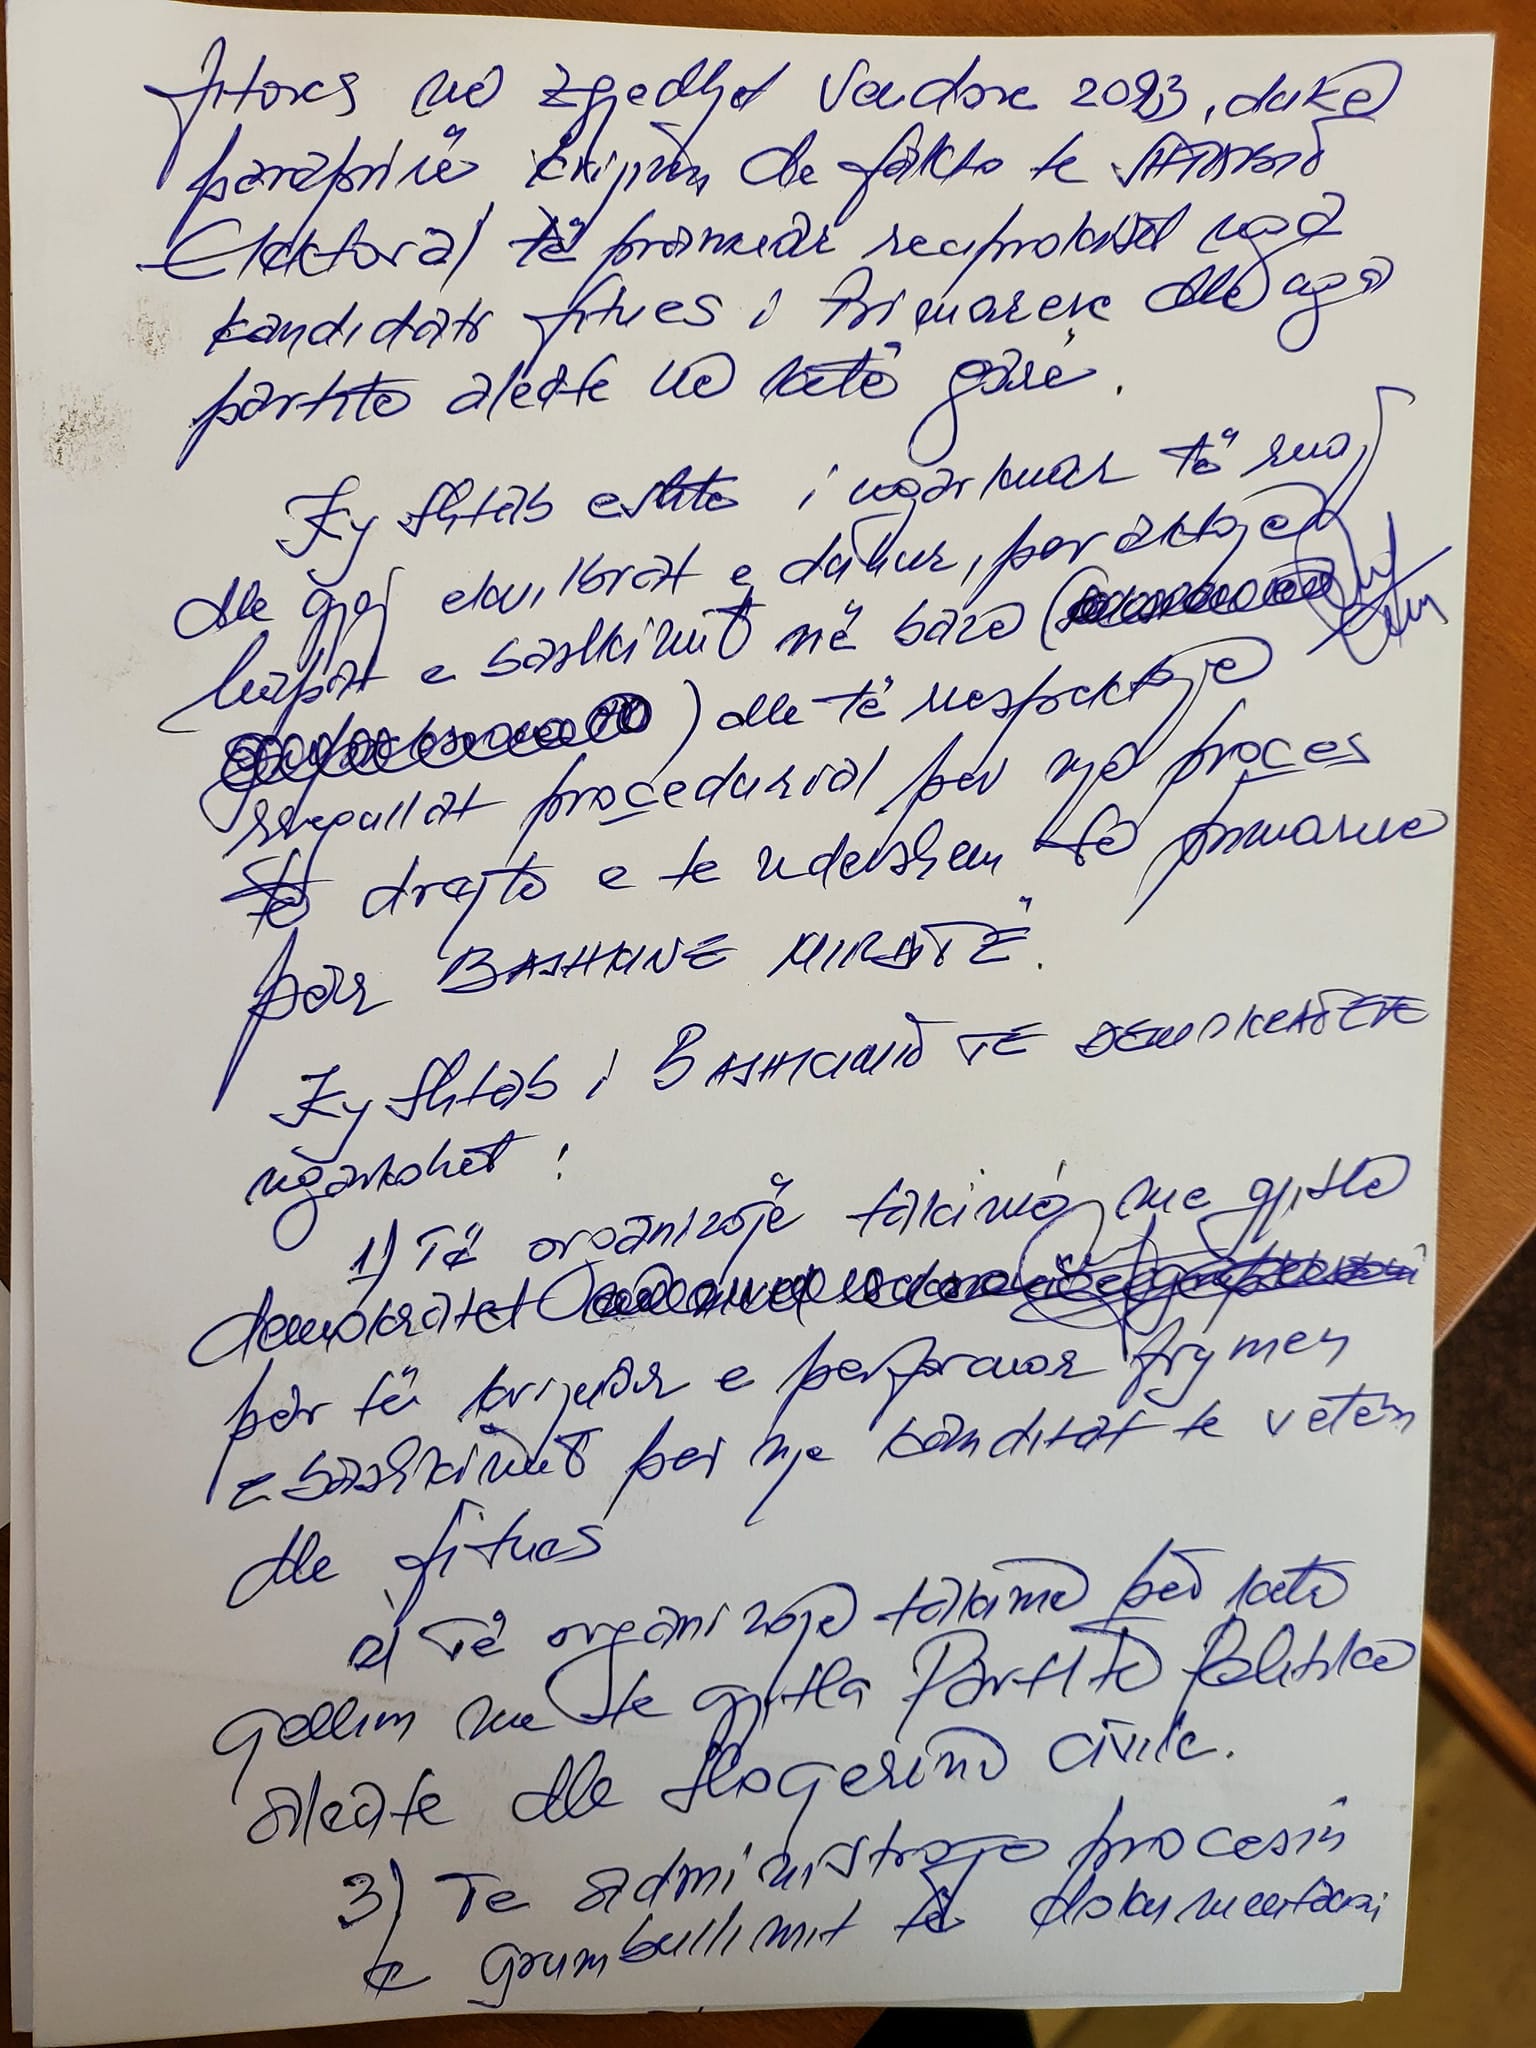 fitores në zgjedhjet Vendore 2023, duke
paraprirë krijimin de fakto te Shtabit
Elektoral të pranuar reciprokisht nga
kandidati fitues i Primareve dhe nga
partitë aleate në këtë garë.
Ky Shtab eshte i ngarkuar të ruaj
dhe gjej ekuilibrat e duhur, per aktojen
e bashkimit në bazë (
) dhe të respektoje
rregullat proceduriale per një proces
të drejtë e te ndershem të primareve
për BASHKINË MIRDITË.
Ky Shtab i BASHKIMIT TË DEMOKRATËVE
ngarkohet:
1) Të organizojë takime me gjithë
demokratet
për të krijuar e performuar frymen
e bashkimit per nje kandidat te vetem
dhe fitues
2) Të organizoje takime për këtë
qellim me te gjitha Partitë Politike
aleate dhe shoqerinë civile.
3) Te administroje procesin
e grumbullimit të dokumentacioni